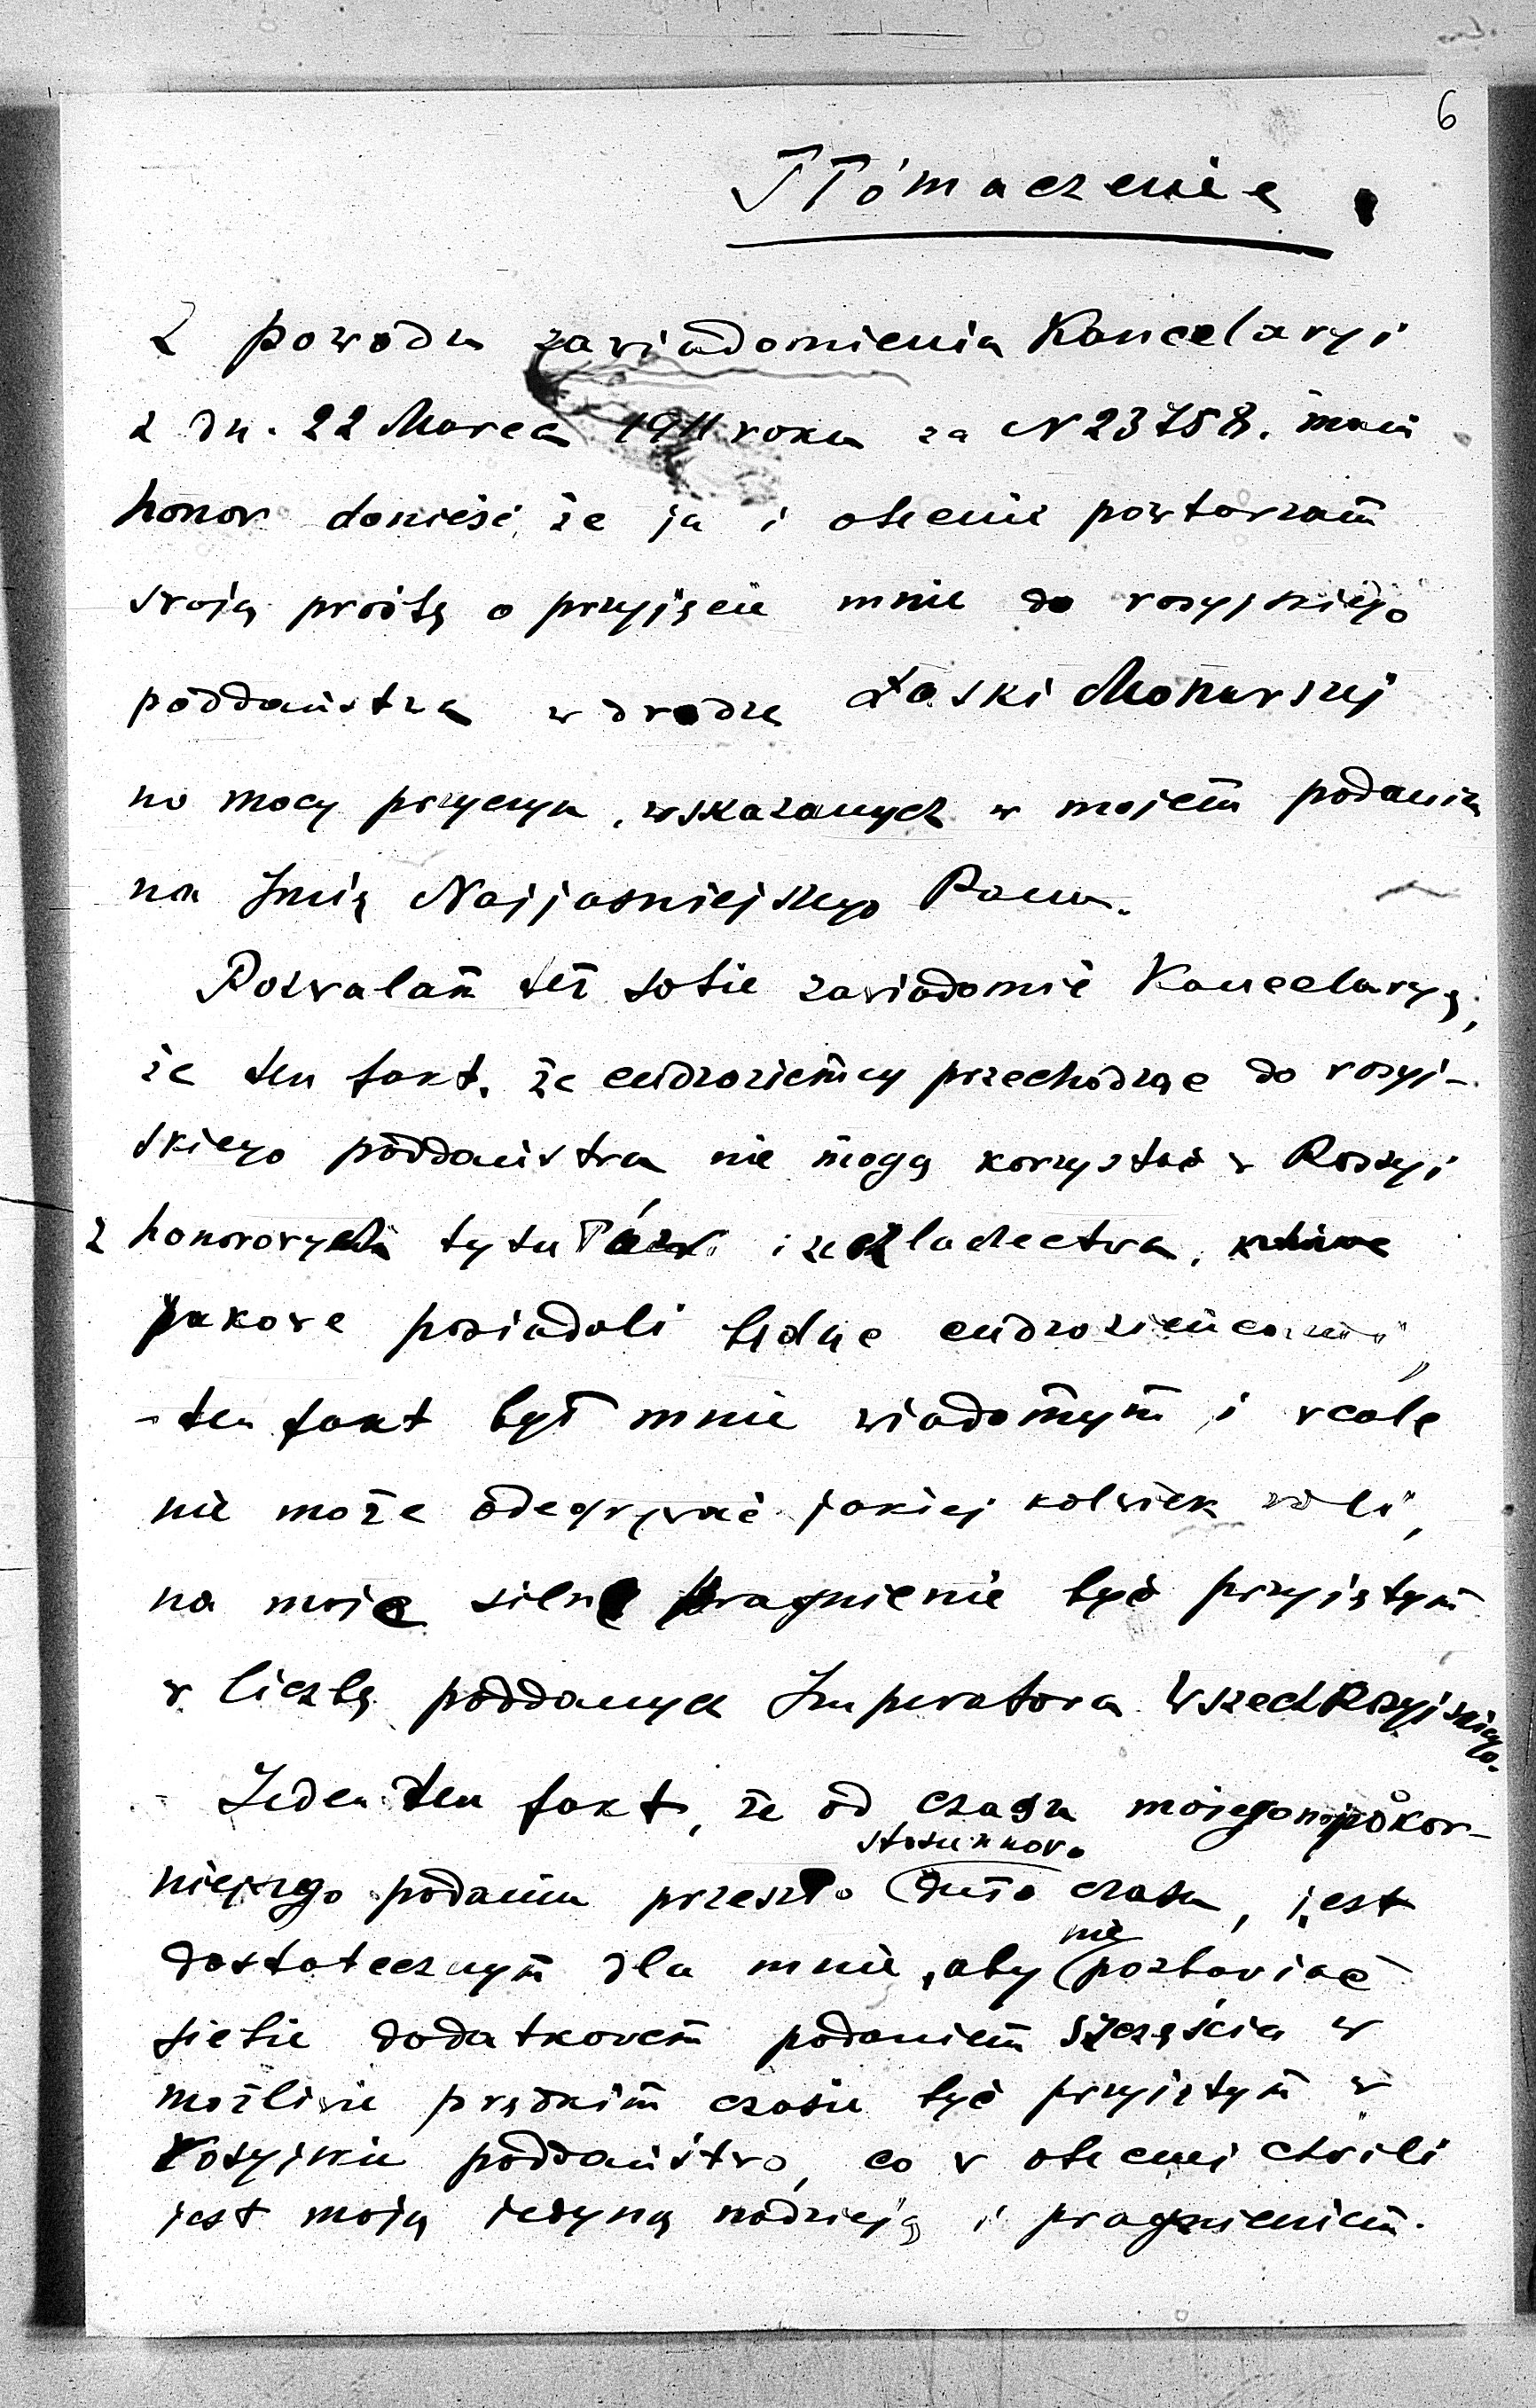 6
Tłómaczenie.
Z powodu zawiadomienia Kancelaryi
z dn. 22 Marca 1911 roku za N 23758. mam
honor donieść, że ja i obecnie powtarzam
swoją prośbę o przyjęcie mnie do rosyjskiego
poddaństwa w drodze Łaski Monarszej
na mocy przyczyn, wskazanych w mojem podaniu
na Imię Najjaśniejszego Pana.
Pozwalam też sobie zawiadomić Kancelaryę,
że ten fakt, że cudzoziemcy przechodząc do rosyj-
skiego poddaństwa nie mogą korzystać w Rossyi
z honorowych tytułów i szlachectwa,
jakowe posiadali będąc cudzoziemcami,
- ten fakt był mnie wiadomym i wcale
nie może odegrywać jakiej kolwiek roli,
na moje silne pragnienie być przyjętym
w liczbę poddanych Imperatora Wszechrosyjskiego.
Jeden ten fakt, że od czasu mojego najpokor-
niejszego podania przeszło stosunkowo dużo czasu, jest
dostatecznym dla mnie, aby nie pozbawiać
siebie dodatkowem podaniem szczęścia w
możliwie prędkim czasie być przyjętym w
rosyjskie poddaństwo, co w obecnej chwili
jest moją jedyną nadzieją i pragnieniem.